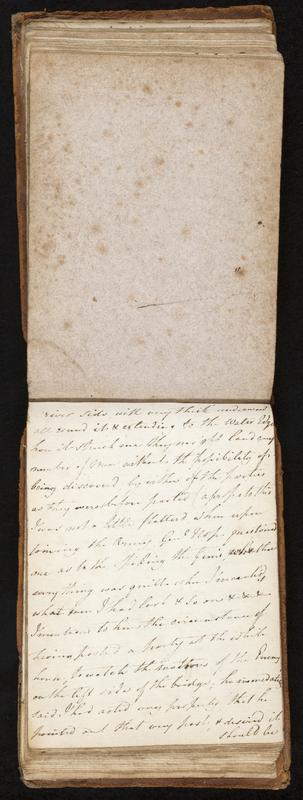 river side with very thick underwood
all round it & extending to the Water Edge
how it struck me they might land any
number of Men without the possibility of
being discovered by either of the parties
as they were before posted apropo to this
I was not a little flatterd when upon
joining the Genl questioned
me as to the
everything was quiet when I marched
what men I had lost & so on & & &
I mentiond to him the circumstance of
having posted a party at the white
house, to watch the motions of the Enemy
on the left side of the bridge, he immediately
said, I had acted very properly that he
pointed out that very post, & desired it
should be